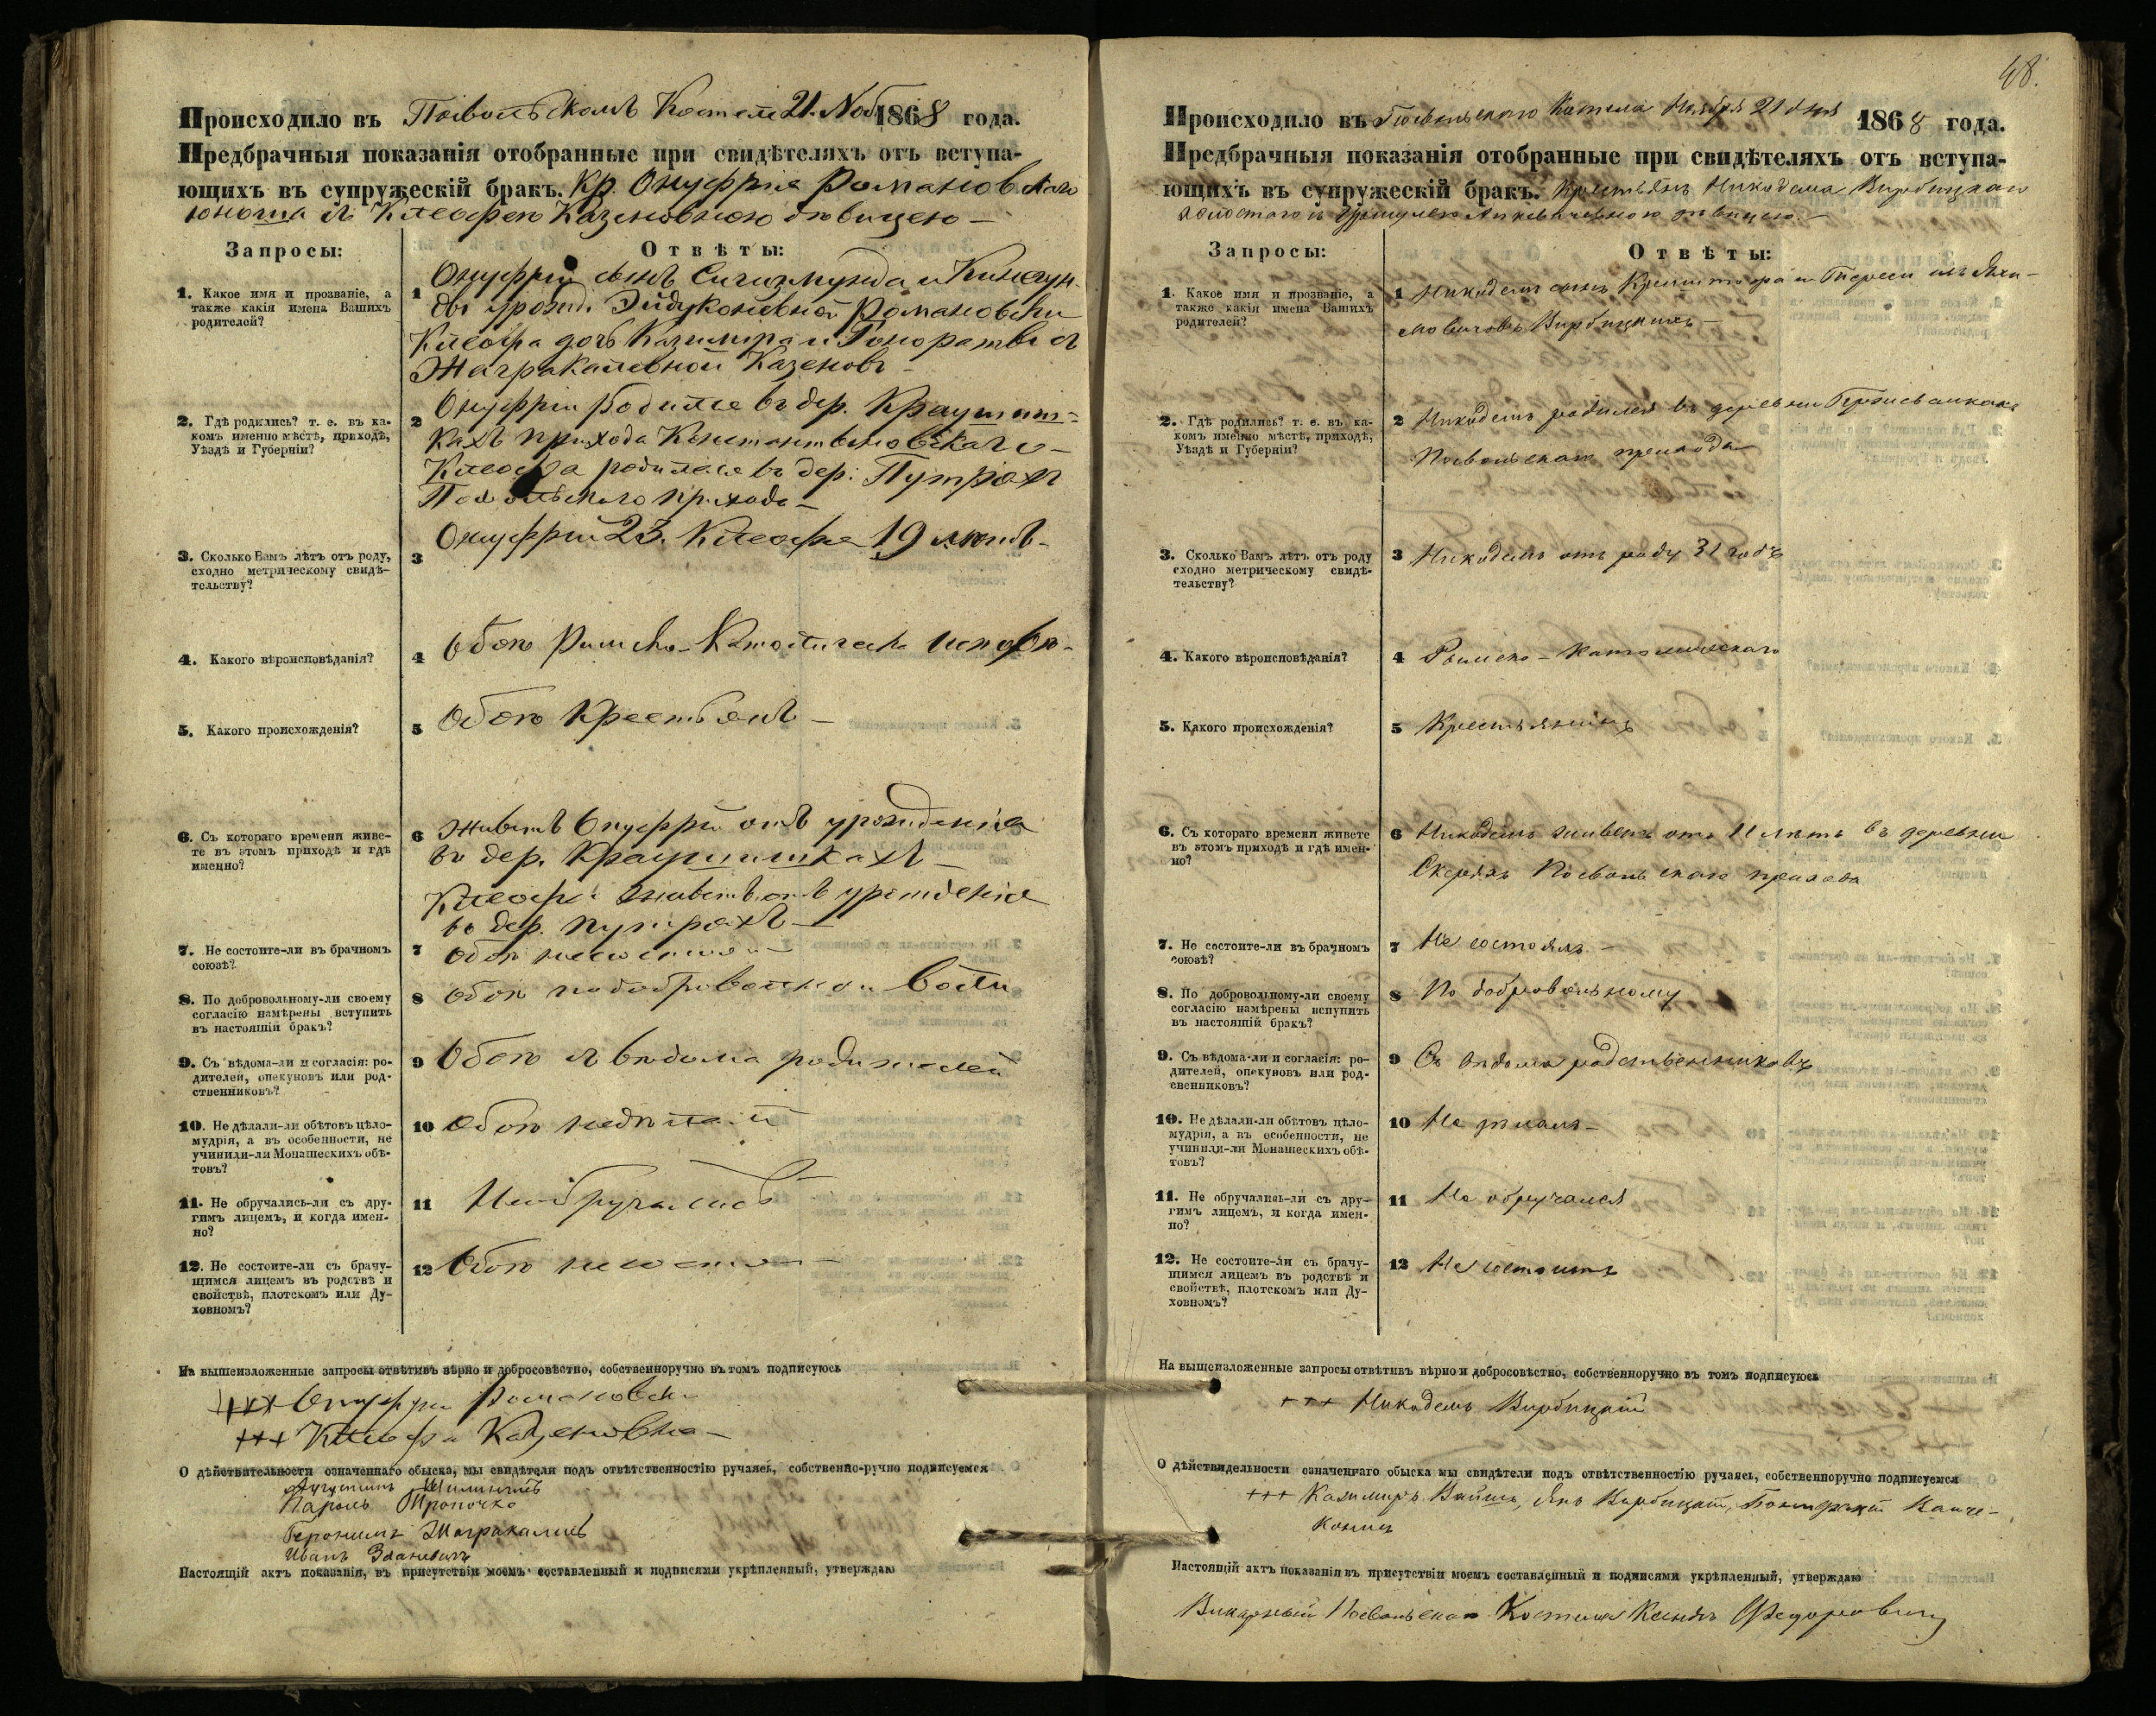 Происходило въ Посвольскомъ Костеле 21. Нояб 1868 года.
Предбрачныя показанія отобранные при свидѣтеляхъ отъ вступа-
ющихъ въ супружескій бракъ. Кр. Онуфрія Романовскаго
юноша съ Клеофею Казеновною дѣвицею —
Запросы: Отвѣты:
1. Какое имя и прозваніе, а
также какія имена Вашихъ
родителей?
1 Онуфрій сынъ Сигизмунда и Кинегун-
ды урожд. Эйдуконевной Романовски
Клеофа дочь Казимира и Гонораты съ
Жаграколевной Казеновъ —
2. Гдѣ родились? т. е. въ ка-
комъ именно мѣстѣ, приходѣ,
Уѣздѣ и Губерніи?
2 Онуфрій родился въ дер.
кахъ прихода Константиновскаго —
Клеофа родилась въ дер: Путрахъ
прихода —
3. Сколько Вамъ лѣтъ отъ роду,
сходно метрическому свидѣ-
тельству?
3 Онуфрій 23. Клеофа 19 лѣтъ —
4. Какого вѣроисповѣданія?
4 Обое Римско-Католическ. исповѣ.
5. Какого происхожденія?
5 Обое Крестьянъ —
6. Съ котораго времени живе-
те въ этомъ приходѣ и гдѣ
именно?
6 Живетъ Онуфрій отъ урожденія
въ дер.
Клеофа живетъ отъ урожденія
въ дер. Путрахъ —
7. Не состоите-ли въ брачномъ
союзѣ?
7 Обое не состоят
8. По добровольному-ли своему
согласію намѣрены вступить
въ настоящій бракъ?
8 Обое по добровольной воли
9. Съ вѣдома-ли и согласія: ро-
дителей, опекуновъ или род-
ственниковъ?
9 Обое съ вѣдома родителей
10. Не дѣлали-ли обѣтовъ цѣло-
мудрія, а въ особенности, не
учинили-ли Монашескихъ обѣ-
товъ?
10 Обое не дѣлали
11. Не обручались-ли съ дру-
гимъ лицемъ, и когда имен-
но?
11 Не обручались
12. Не состоите-ли съ брачу-
щимся лицемъ въ родствѣ и
свойствѣ, плотскомъ или Ду-
ховномъ?
12 Обое не состоят —
На вышеизложенные запросы отвѣтивъ вѣрно и добросовѣстно, собственноручно въ томъ подписуюсь
+++ Онуфри Романовски
+++ Клеофа Казеновна —
О дѣйствительности означеннаго обыска, мы свидѣтели подъ отвѣтственностію ручаясь, собственно-ручно подписуемся
Августинъ
Кароль
Геронимъ Жагракалисъ
Иванъ Здановичъ
Настоящій актъ показанія, въ присутствіи моемъ составленный и подписями укрѣпленный, утверждаю
48.
Происходило въ Посвольскаго Костела Ноября 21 дня 1868 года.
Предбрачныя показанія отобранные при свидѣтеляхъ отъ вступа-
ющихъ въ супружескій бракъ. Крестьянъ Никодема Вирбицкаго
холостого съ Уршулею дѣвицею. —
Запросы: Отвѣты:
1. Какое имя и прозваніе, а
также какія имена Вашихъ
родителей?
1 Никодемъ сынъ Криштофа и Тересы изъ Яхи-
мовичовъ Вирбицкихъ —
2. Гдѣ родились? т. е. въ ка-
комъ именно мѣстѣ, приходѣ,
Уѣздѣ и Губерніи?
2 Никодемъ родился въ деревни
Посвольскаго прихода
3. Сколько Вамъ лѣтъ отъ роду
сходно метрическому свидѣ-
тельству?
3 Никодемъ отъ роду 31 годъ
4. Какого вѣроисповѣданія?
4 Римско-Католическаго
5. Какого происхожденія?
5 Крестьянинъ
6. Съ котораго времени живете
въ этомъ приходѣ и гдѣ имен-
но?
6 Никодемъ живетъ отъ 11 лѣтъ въ деревни
Посвольскаго прихода
7. Не состоите-ли въ брачномъ
союзѣ?
7 Не состоялъ —
8. По добровольному-ли своему
согласію намѣрены вступить
въ настоящій бракъ?
8 По добровольному
9. Съ вѣдома-ли и согласія: ро-
дителей, опекуновъ или род-
свенниковъ?
9 Съ вѣдома родственниковъ
10. Не дѣлали-ли обѣтовъ цѣло-
мудрія, а въ особенности, не
учинили-ли Монашескихъ обѣ-
товъ?
10 Не дѣлалъ —
11. Не обручались-ли съ дру-
гимъ лицемъ, и когда имен-
но?
11 Не обручался
12. Не состоите-ли съ брачу-
щимся лицемъ въ родствѣ и
свойствѣ, плотскомъ или Ду-
ховномъ?
12 Не состоитъ
На вышеизложенные запросы отвѣтивъ вѣрно и добросовѣстно, собственноручно въ томъ подписуюсь
+++ Никодемъ Вирбицкій
О дѣйствидельности означеннаго обыска мы свидѣтели подъ отвѣтственностію ручаясь, собственноручно подписуемся
+++ Казимиръ Янъ Вирбицкій,
Настоящій актъ показанія въ присутствіи моемъ составленный и подписями укрѣпленный, утверждаю
Викарный Посвольскаго Костела Ксендзъ Федоровичъ